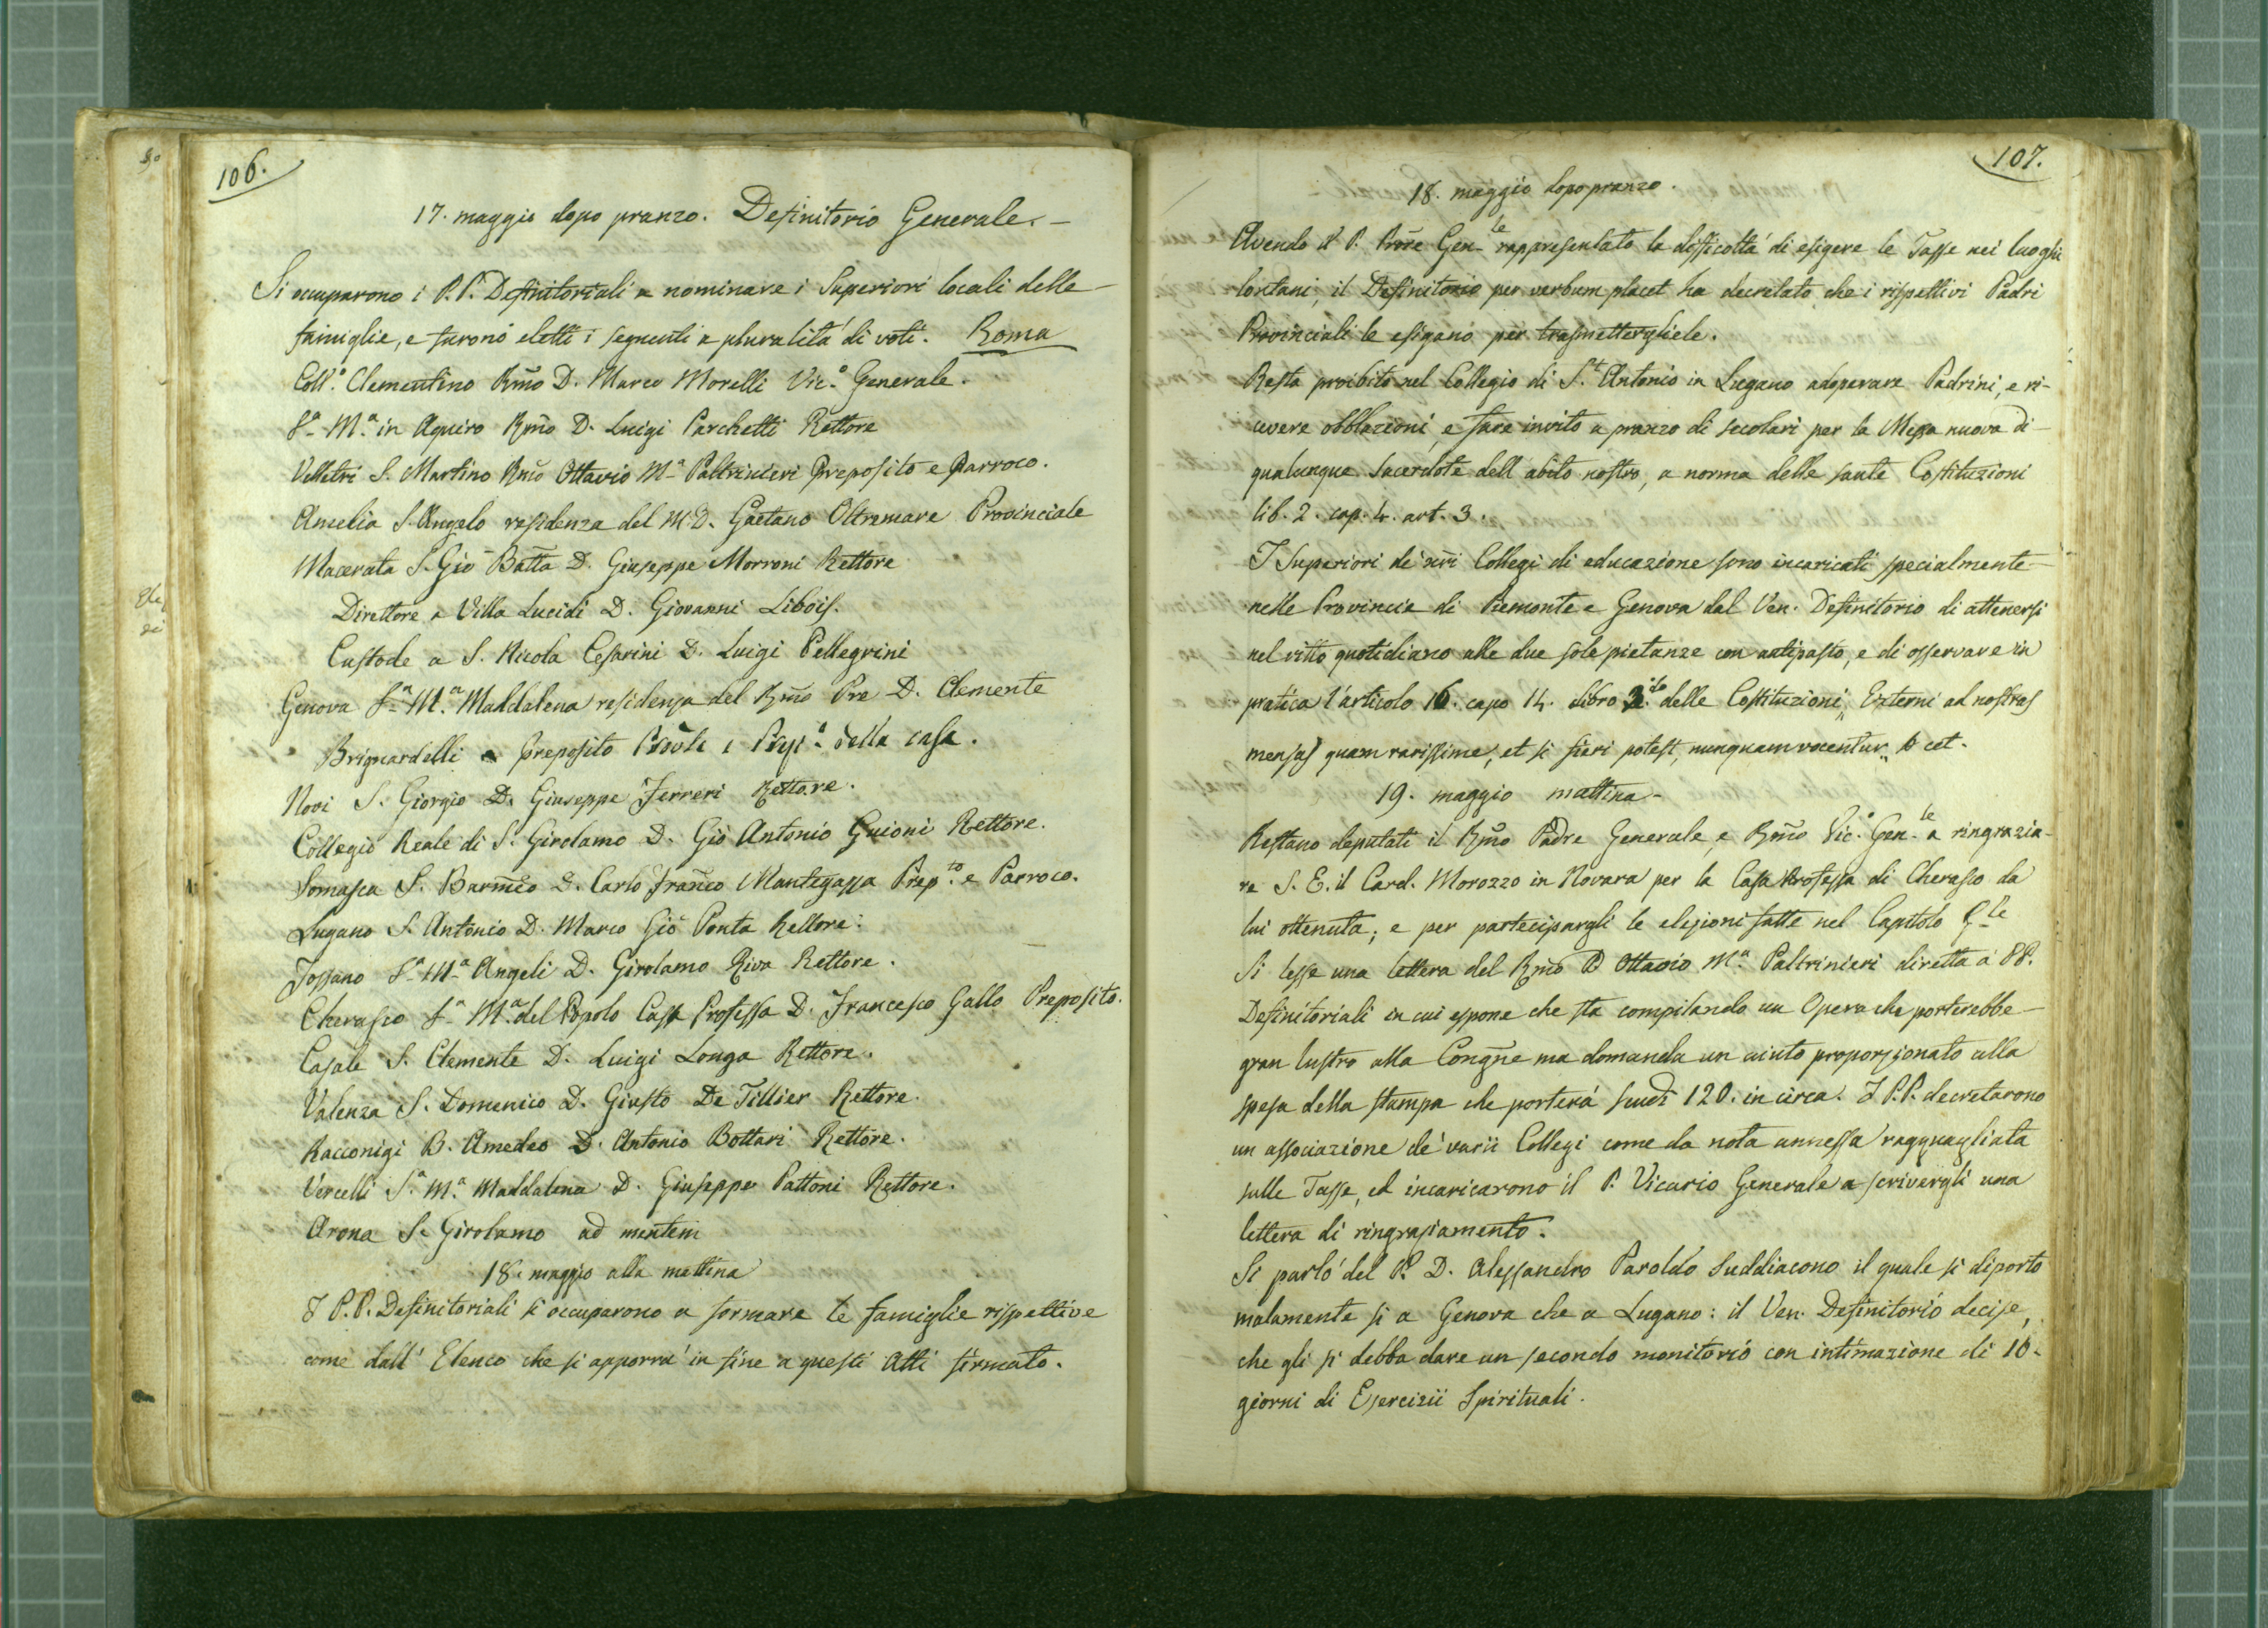 106.
17. maggio dopo pranzo. Definitorio Generale. -
Si occuparono i P.P. Definitoriali a nominare i Superiori locali delle
famiglie, e furono eletti i seguenti a pluralità di voti. Roma
Coll.º Clementino Rmo D. Marco Morelli Vic.º Generale.
Sª Mª in Aquiro Rmo D. Luigi Parchetti Rettore
Velletri S. Martino Rmo Ottavio Mª Paltrinieri Preposito e Parroco.
Amelia S. Angelo residenza del M.D. Gaetano Oltremare Provinciale
Macerata S. Gio Batta D. Giuseppe Morroni Rettore
Direttore a Villa Lucidi D. Giovanni Libois.
Custode a S. Nicola Cesarini D. Luigi Pellegrini
Genova Sª Mª Maddalena residenza del Rmo Pre D. Clemente
Brignardelli Preposito Prole e Prepº della casa.
Novi S. Giorgio D. Giuseppe Ferreri Rettore.
Collegio Reale di S. Girolamo D. Gio Antonio Guioni Rettore.
Somasca S. Barmeo D. Carlo Franco Mantegazza Prep.to e Parroco.
Lugano S. Antonio D. Marco Gio Ponta Rettore.
Fossano Sª Mª Angeli D. Girolamo Riva Rettore.
Cherasco Sª Mª del Popolo Casa Professa D. Francesco Gallo Preposito.
Casale S. Clemente D. Luigi Longa Rettore.
Valenza S. Domenico D. Giusto De Tillier Rettore.
Racconigi B. Amedeo D. Antonio Bottari Rettore.
Vercelli Sª Mª Maddalena D. Giuseppe Pattoni Rettore.
Arona S. Girolamo ad mentem
18. maggio alla mattina
I P.P. Definitoriali si occuparono a formare le famiglie rispettive
come dall' Elenco che si apporrà in fine a questi Atti firmato.
107.
18. maggio dopo pranzo.
Avendo il P. Prore Gen.le rappresentato la difficoltà di esigere le Tasse nei luoghi
lontani, il Definitorio per verbum placet ha decretato che i rispettivi Padri
Provinciali le esigano per trasmettergliele.
Resta proibito nel Collegio di S.t Antonio in Lugano adoperare Padrini, e ri-
cevere obblazioni, e fare invito a pranzo di secolari per la Messa nuova di
qualunque Sacerdote dell abito nostro, a norma delle sante Costituzioni
lib. 2. cap. 4. art. 3.
I Superiori de' nri Collegi di educazione sono incaricati specialmente
nelle Provincie di Piemonte e Genova dal Ven. Definitorio di attenersi
nel vitto quotidiano alle due sole pietanze con antipasto, e di osservare in
pratica l'articolo 16. capo 14. libro 2.do delle Costituzioni „ Externi ad nostras
mensas quam rarissime, et si fieri potest, nunquam vocentur „ & cet.
19. maggio mattina -
Restano deputati il Rmo Padre Generale, e Rmo Vic.º Gen.le a ringrazia-
re S. E. il Card. Morozzo in Novara per la Casa Professa di Cherasco da
lui ottenuta; e per partecipargli le elezioni fatte nel Capitolo G.le
Si lesse una lettera del Rmo D Ottavio Mª Paltrinieri diretta a' PP.
Definitoriali in cui espone che sta compilando un Opera che porterebbe
gran lustro alla Congne ma domanda un aiuto proporzionato alla
spesa della stampa che porterà scudi 120. in circa. I P.P. decretarono
un associazione de' varii Collegi come da nota annessa ragguagliata
sulle Tasse, ed incaricarono il P. Vicario Generale a scrivergli una
lettera di ringraziamento.
Si parlò del P. D. Alessandro Paroldo Suddiacono il quale si diportò
malamente si a Genova che a Lugano: il Ven. Definitorio decise,
che gli si debba dare un secondo monitorio con intimazione di 10.
giorni di Esercizii Spirituali.